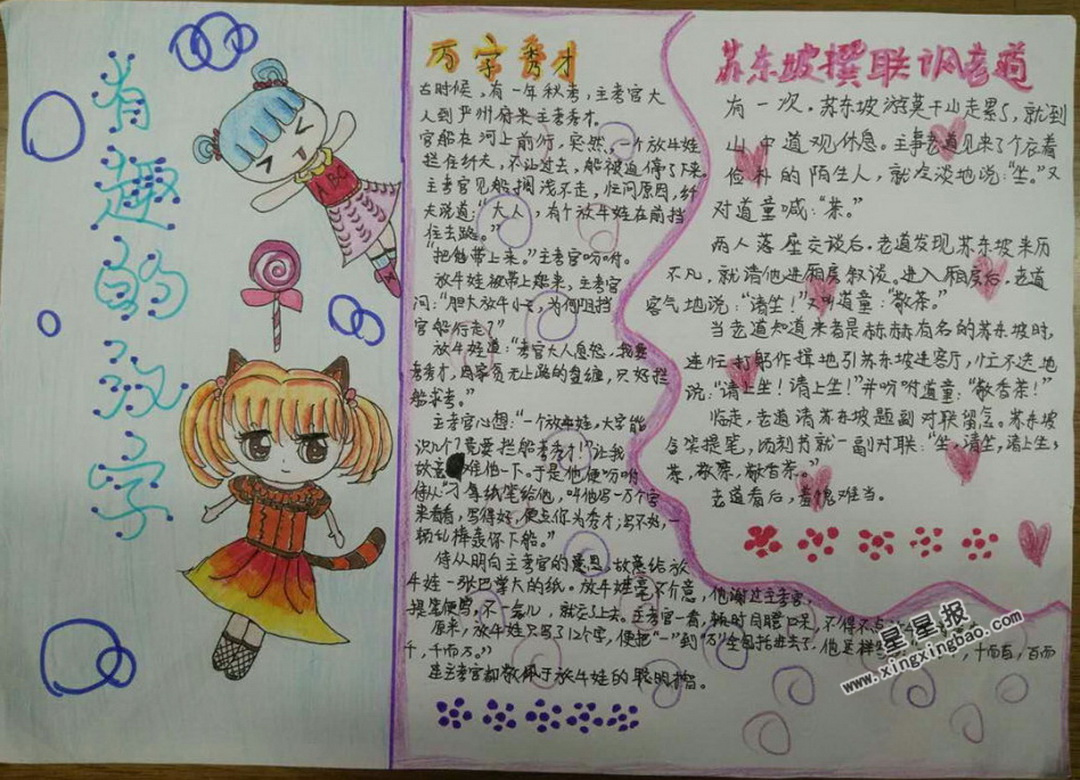 有趣的汉字
ABC
万字秀才
古时候,有一年秋考,主考官大
人到严州府来主考秀才。
官船在河上前行,突然,一个放牛娃
拦住纤夫,不让过去,船被迫停了下来。
主考官见船搁浅不走,忙问原因,纤
夫说道:“大人,有个放牛娃在前挡
住去路。”
“把他带上来。”主考官吩咐。
放牛娃被带上船来,主考官
问:“胆大放牛小子,为何阻挡
官船行走?”
放牛娃道:“考官大人息怒,我要
考秀才,因家贫无上路的盘缠,只好拦
船求考。”
主考官心想:“一个放牛娃,大字能
识几个?竟要拦船考秀才!让我
故意难他一下。于是他便吩咐
侍从“拿纸笔给他,叫他写一万个字
来看看,写得好,便点你为秀才;写不好,一
顿乱棒轰你下船。”
侍从明白主考官的意思,故意给放
牛娃一张巴掌大的纸。放牛娃毫不介意,他谢过主考官,
提笔便写,不一会儿,就交了上去。主考官一看,顿时目瞪口呆,不得不点
原来,放牛娃只写了12个字,便把“一”到“万”全包括进去了,他这样写 ,十而百,百而
千,千而万。”
连主考官都敬佩于放牛娃的聪明才智。
苏东坡撰联讽老道
有一次,苏东坡游莫干山走累了,就到
山中道观休息。主事老道见来了个衣着
俭朴的陌生人,就冷淡地说:“坐。”又
对道童喊:“茶。”
两人落座交谈后,老道发现苏东坡来历
不凡,就请他进厢房叙谈。进入厢房后,老道
客气地说:“请坐!”又叫道童:“敬茶。”
当老道知道来者是赫赫有名的苏东坡时,
连忙打躬作揖地引苏东坡进客厅,忙不迭地
说:“请上坐!请上坐!”并吩咐道童:“敬香茶!”
临走,老道请苏东坡题副对联留念。苏东坡
含笑提笔,顷刻书就一副对联:“坐,请坐,请上坐;
茶,敬茶,敬香茶。”
老道看后,羞愧难当。
星星报
www.xingxingbao.com